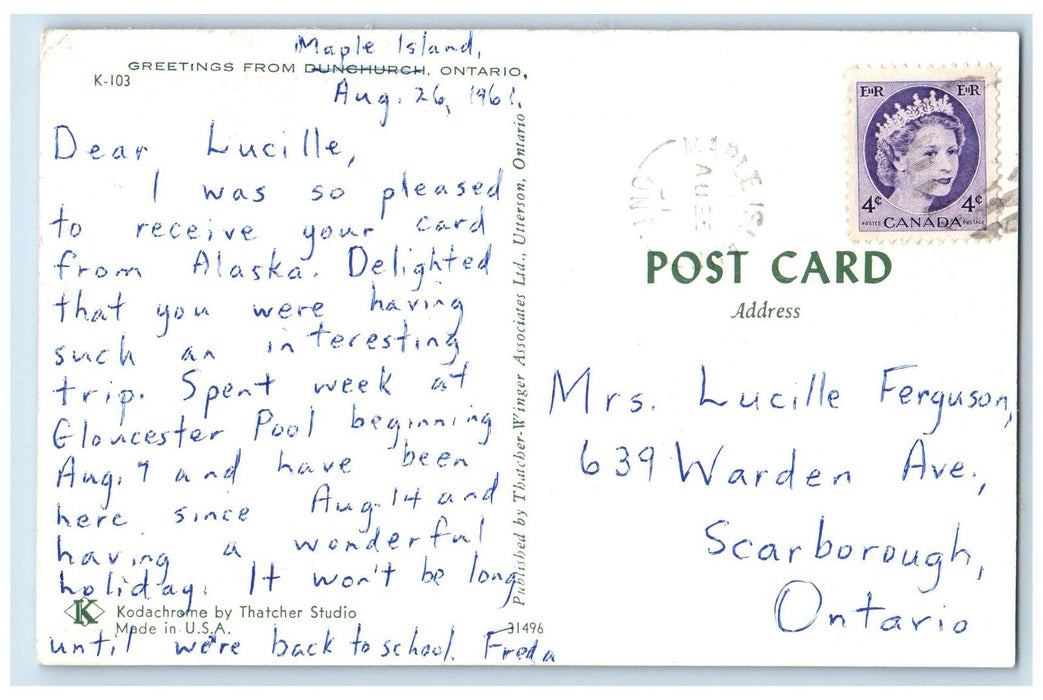 Maple Island,
GREETINGS FROM DUNCHURCH, ONTARIO,
K-103
Aug. 26, 1961.
Dear Lucille,
I was so pleased
to receive your card
from Alaska. Delighted
that you were having
such an interesting
trip. Spent week at
Gloucester Pool beginning
Aug. 7 and have been
here since Aug. 14 and
having a wonderful
holiday. It won't be long
K
Kodachrome by Thatcher Studio
Made in U.S.A.
31496
until we're back to school. Freda
Published by Thatcher-Winger Associates Ltd., Utterson, Ontario
MAPLE
AU
ONT
EIIR EIIR
4¢ 4¢
POSTES CANADA POSTAGE
POST CARD
Address
Mrs. Lucille Ferguson,
639 Warden Ave.,
Scarborough,
Ontario